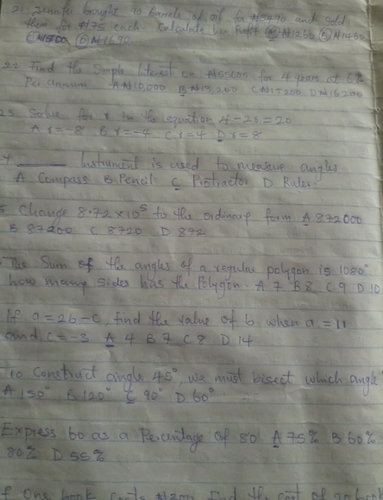 21. Jennifer bought 10 barrels of oil for and sold
them for ₦175 each. Calculate her Profit
22. Find the Simple Interest on for 4 years at 6%
Per annum A ₦10,000 B C D
Solve for x in the equation 4-2x=20
A x=-8 B x=-4 C x=4 D x=8
Instrument is used to measure angles
A Compass B Pencil C Protractor D Ruler
Change 8.72x10⁵ to the ordinary form A 872000
B 87200 C 8720 D 872
The Sum of the angles of a regular polygon is 1080°
how many sides has the Polygon. A 7 B 8 C 9 D 10
If a=2b-c, find the value of b when a=11
and c=-3 A 4 B 7 C 8 D 14
To Construct angle 45°, we must bisect which angle
A 150° B 120° C 90° D 60°
Express 60 as a Percentage of 80 A 75% B 60%
80% D 55%
one book Find the cost of